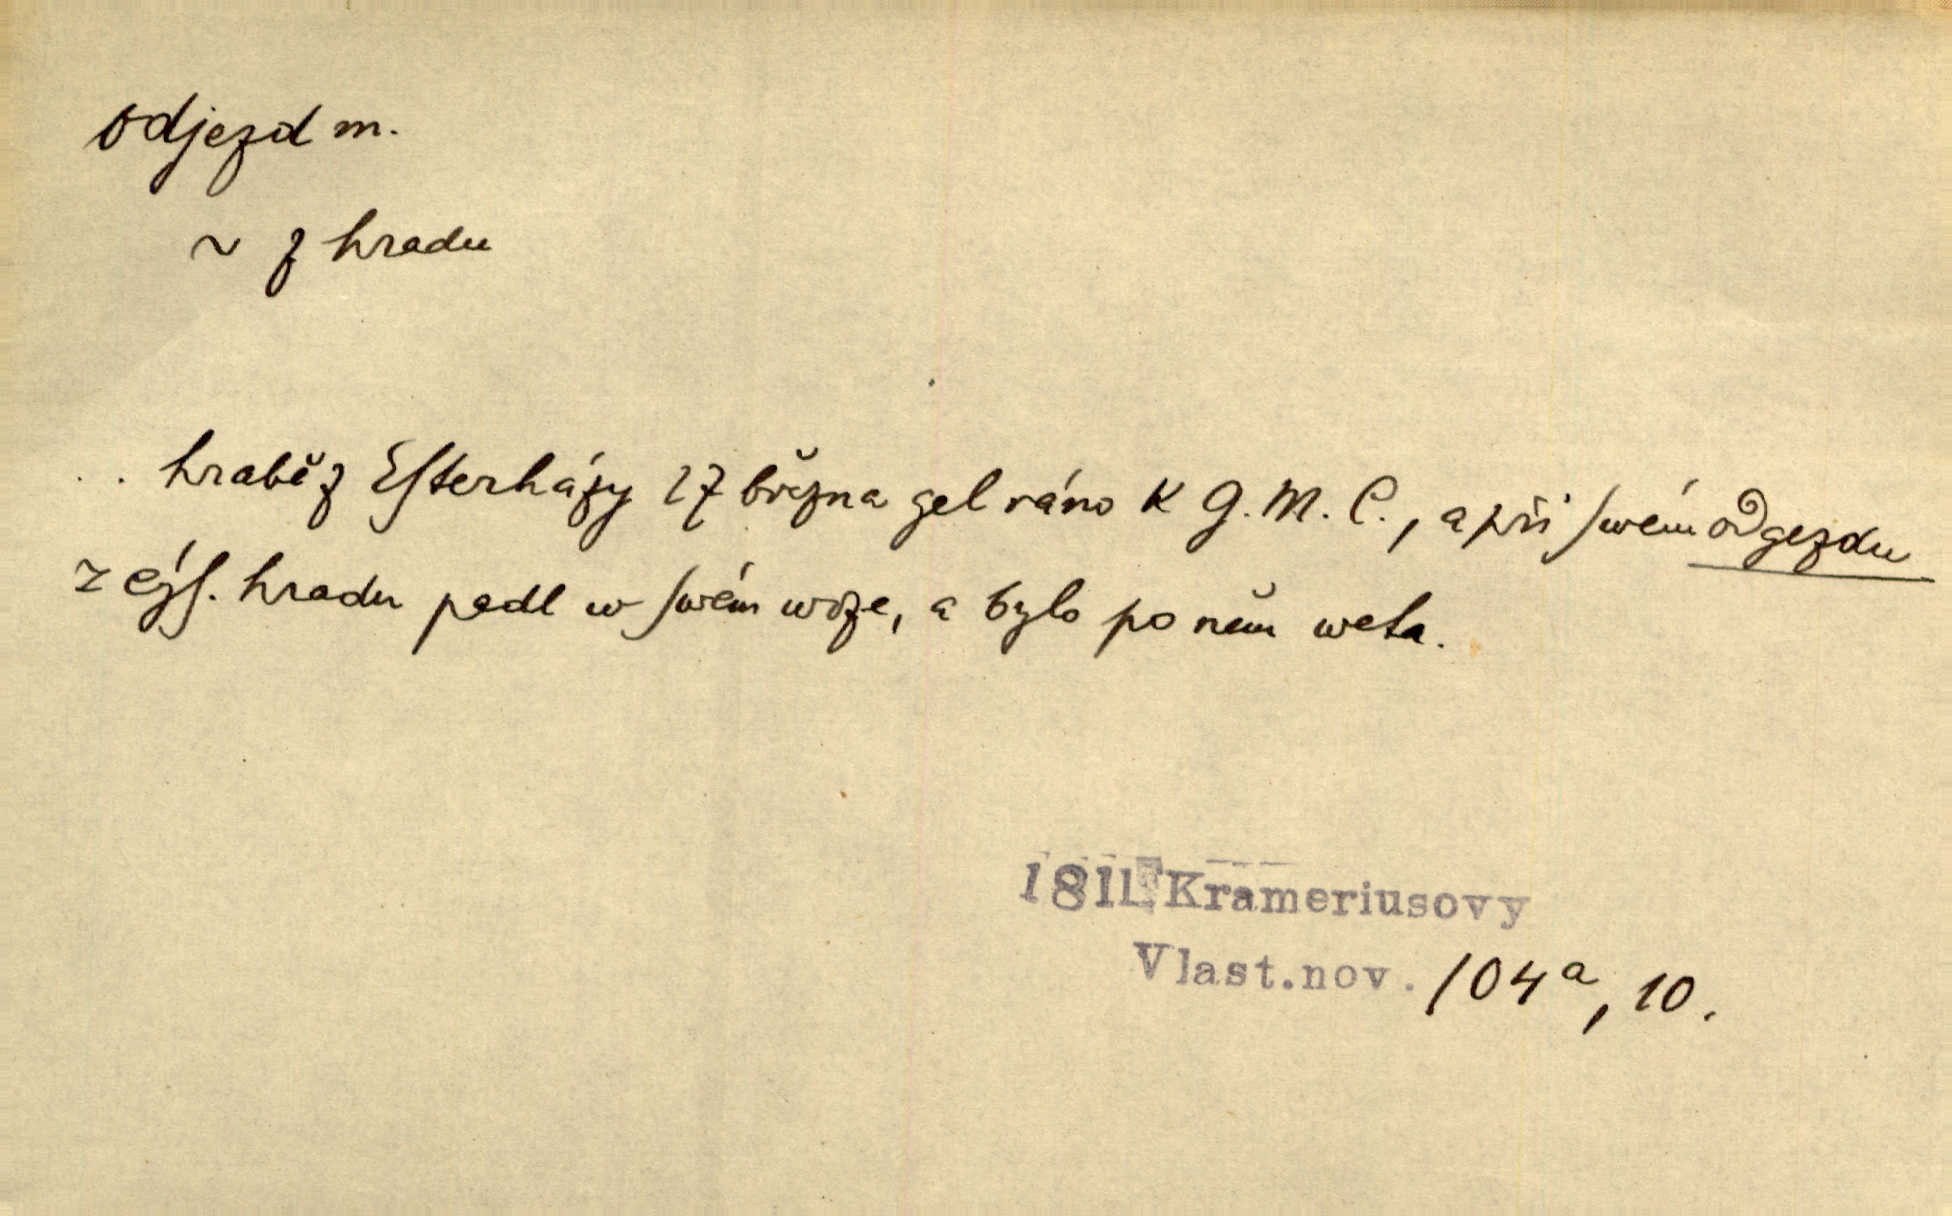 odjezd m.
~ z hradu
. . hrabě z Esterházy 17 března gel ráno k G. M. C., a při swém odgezdu
z cýs. hradu padl w swém woze, a bylo po něm weta.
1811 Krameriusovy
Vlast.nov. 104a, 10.